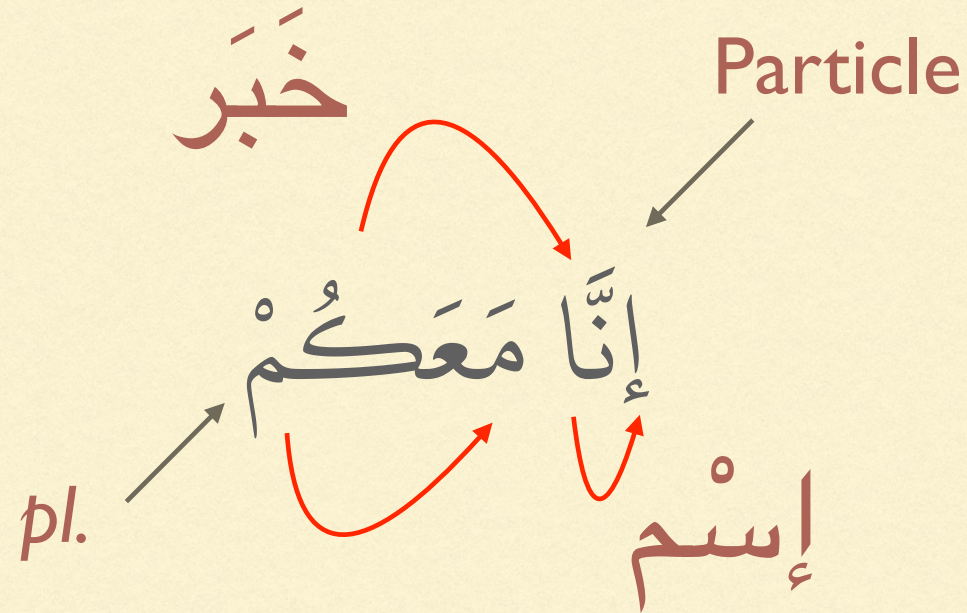 خَبَر
Particle
إِنَّا مَعَكُمْ
pl.
إسْم